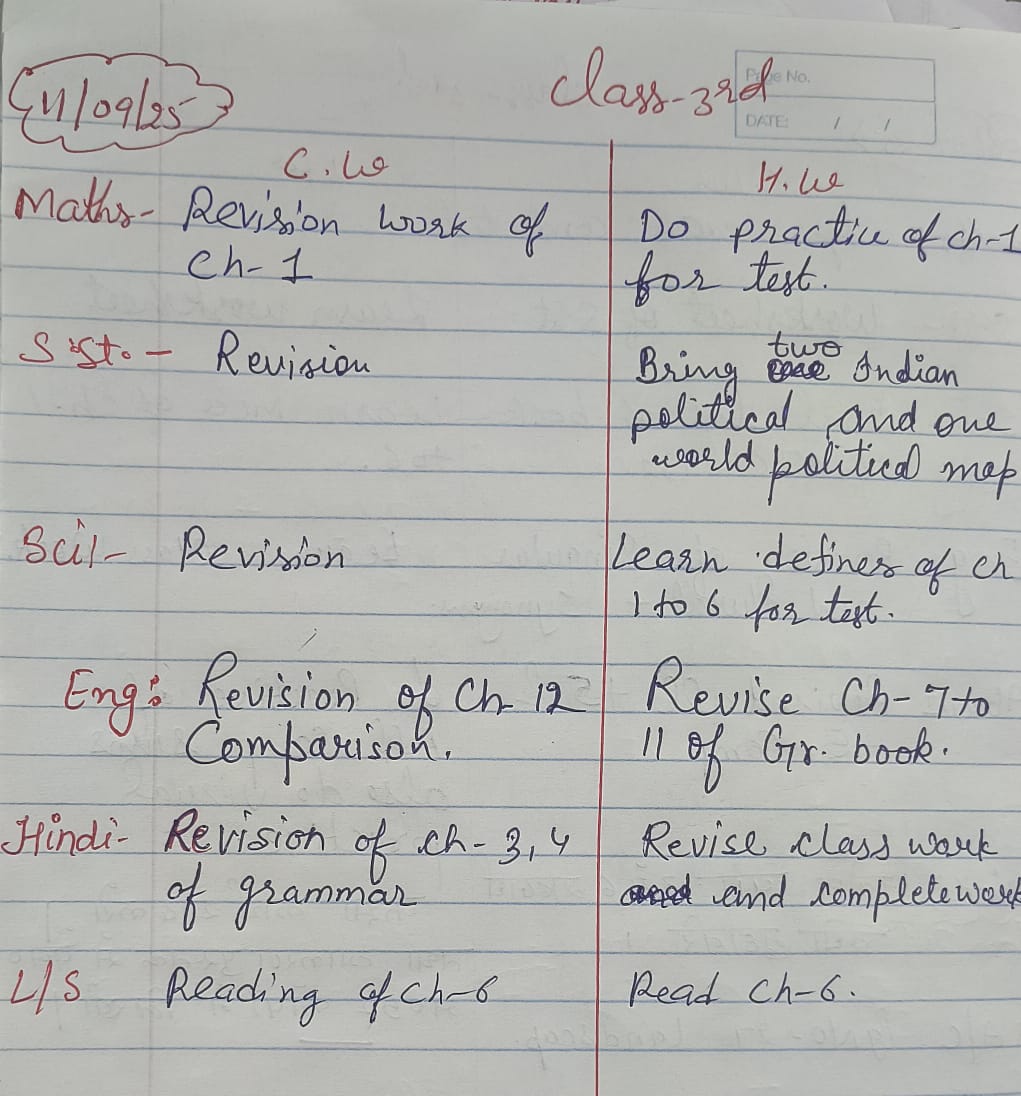 11/09/25
Class-3rd
Page No.
DATE: / /
C.W
H.W
Maths- Revision work of
Ch-1
Do practice of ch-1
for test.
S.St. - Revision
Bring two Indian
political and one
world political map
Sci- Revision
Learn defines of ch
1 to 6 for test.
Eng: Revision of Ch 12
Comparison.
Revise Ch-7 to
11 of Gr. book.
Hindi- Revision of ch-3,4
of grammar
Revise class work
and complete work
L/S Reading of ch-6
Read ch-6.